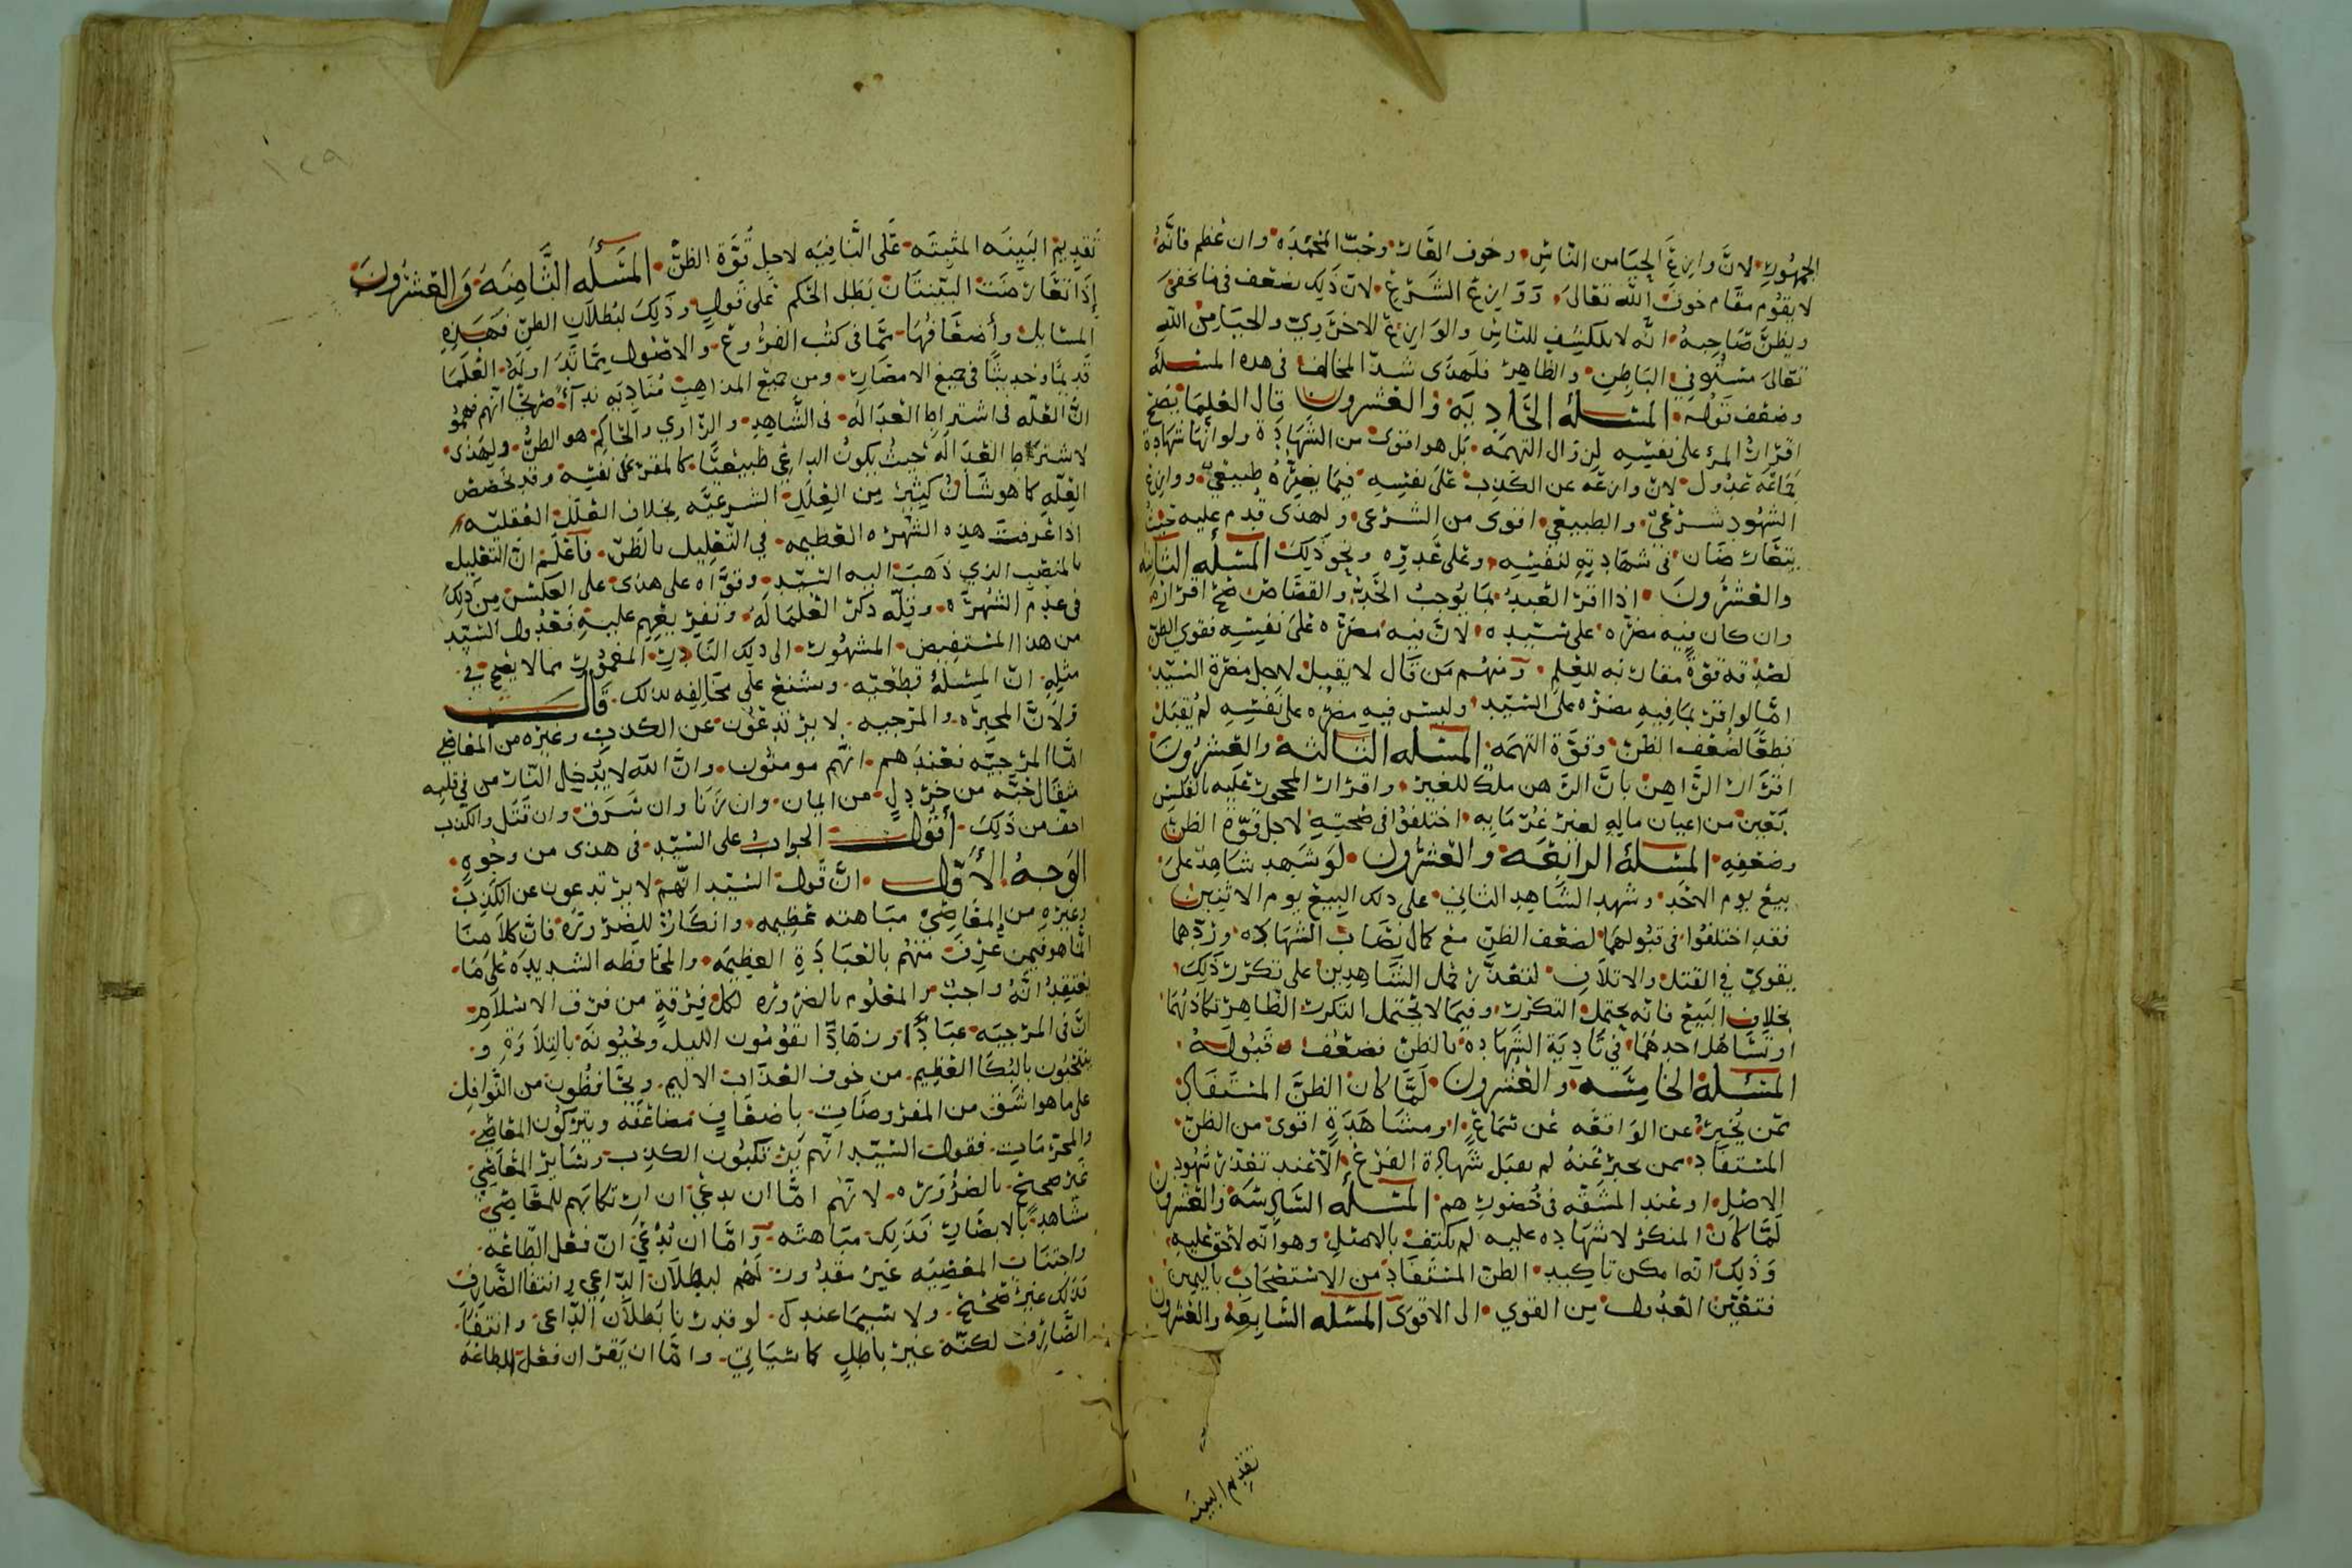 الجمهور لان وازع الحيا من الناس وخوف العار وحب المحمده وان عظم فانه
لا يقوم مقام خوف الله تعالى ووازع الشرع لان ذلك يضعف فيما يخفى
ويظن صاحبه انه لا ينكشف للناس والوازع الاخروي والحيا من الله
تعالى مستو في الباطن والظاهر فلهذى شد المخالف في هذه المسئلة
وضعف قوله المسئلة الحاديه والعشرون قال العلما يصح
اقرار المرء على نفسه لزوال التهمه بل هو اقوى من الشهادة ولو انها شهادة
جماعه عدول لان وازعه عن الكذب على نفسه فيما يضره طبيعي ووازع
الشهود شرعي والطبيعي اقوى من الشرعي ولهذى قدم عليه حيث
يتعارضان في شهادته لنفسه وعلى غيره ونحو ذلك المسئله الثانيه
والعشرون اذا اقر العبد بما يوجب الحد والقصاص صح اقراره
وان كان فيه مضره على سيده لان فيه مضره على نفسه فقوي الظن
لصدقه قوة مقاربه للعلم ومنهم من قال لا يقبل لاجل مضرة السيد
اما لو اقر بما فيه مضره على السيد وليس فيه مضره على نفسه لم يقبل
قطعا لضعف الظن وقوة التهمه المسئله الثالثة والعشرون
اقرار الراهن بان الرهن ملك للغير واقرار المحجور عليه بالفلس
بعين من اعيان ماله لغير غرمايه اختلفوا في صحته لاجل قوة الظن
وضعفه المسئلة الرابعه والعشرون لو شهد شاهد على
بيع يوم الاحد وشهد الشاهد الثاني على ذلك البيع يوم الاثنين
فقد اختلفوا في قبولهما لضعف الظن مع كمال نصاب الشهاده وردهما
يقوى في القتل والاتلاف لتعذر حمل الشاهدين على تكرر ذلك
بخلاف البيع فانه يحتمل التكرر وفيما لا يحتمل التكرر الظاهر تكاذبهما
او تساهل احدهما في تادية الشهاده بالظن فضعف قبوله
المسئلة الخامسه والعشرون لما كان الظن المستفاد
ممن يخبر عن الواقعه عن سماع او مشاهدة اقوى من الظن
المستفاد ممن يخبر عنه لم يقبل شهادة الفرع الا عند تعذر شهود
الاصل او عند المشقه في حضورهم المسئله السادسة والعشرون
لما كان المنكر لا شهاده عليه لم يكتف بالاصل وهو انه لا حق عليه
وذلك انه امكن تاكيد الظن المستفاد من الاستصحاب باليمين
فتعين العدول من القوي الى الاقوى المسئله السابعه والعشرون
تقديم البينه
١٢٩
تقديم البينه المثبته على النافيه لاجل قوة الظن المسئله الثامنه والعشرون
إذا تعارضت البينتان بطل الحكم على قول وذلك لبطلان الظن فهذه
المسايل وأضعافها مما في كتب الفروع والاصول مما تداوله العلما
قديما وحديثا في جميع الامصار ومن جميع المذاهب مناديه ندآء صريحا انهم فهموا
ان العله في اشتراط العداله في الشاهد والراوي والحاكم هو الظن ولهذى
لا شترط العداله حيث يكون الداعي طبيعيا كالمقر على نفسه وقد تخصص
العله كما هو شان كثير من العلل الشرعيه بخلاف العلل العقليه
اذا عرفت هذه الشهره العظيمه في التعليل بالظن فاعلم ان التعليل
بالمنصب الذي ذهب اليه السيد وقواه على هذى على العكس من ذلك
في عدم الشهره وقلة ذكر العلما له وتفريعهم عليه فعدول السيد
من هذا المستفيض المشهور الى ذلك النادر المغمور مما لا يصح في
مثله ان المسئلة قطعيه ويشنع على مخالفه بذلك قال
ولان المجبره والمرجيه لا يرتدعون عن الكذب وغيره من المعاصي
اما المرجيه فعندهم انهم مومنون وان الله لا يدخل النار من في قلبه
مثقال حبه من خردل من ايمان وان زنا وان سرق وان قتل والكذب
اخف من ذلك أقول الجواب على السيد في هذى من وجوه
الوجه الأول ان قول السيد انهم لا يرتدعون عن الكذب
وغيره من المعاصي مباهته عظيمه وانكار للضرورة فان كلامنا
انما هو فيمن عرف منهم بالعبادة العظيمه والمحافظه الشديده على ما
يعتقد انه واجب والمعلوم بالضروره لكل فرقة من فرق الاسلام
ان في المرجيه عبادا وزهادا يقومون الليل ويحيونه بالتلاوة و
ينتحبون بالبكا العظيم من خوف العذاب الاليم ويحافظون من النوافل
على ما هو اشق من المفروضات باضعاف مضاعفه ويتركون المعاصي
والمحرمات فقول السيد انهم يرتكبون الكذب وساير المعاصي
غير صحيح بالضروره لانهم اما ان يدعي ان ارتكابهم للمعاصي
شاهد بالابصار فذلك مباهته واما ان يدعي ان فعل الطاعه
واجتناب المعصيه غير مقدور لهم لبطلان الداعي وانتفا الصارف
فذلك غير صحيح ولا سيما عندك لو قدرنا بطلان الداعي وانتفا
الصارف لكنه غير باطل كما سياتي واما ان يقر ان فعل الطاعه